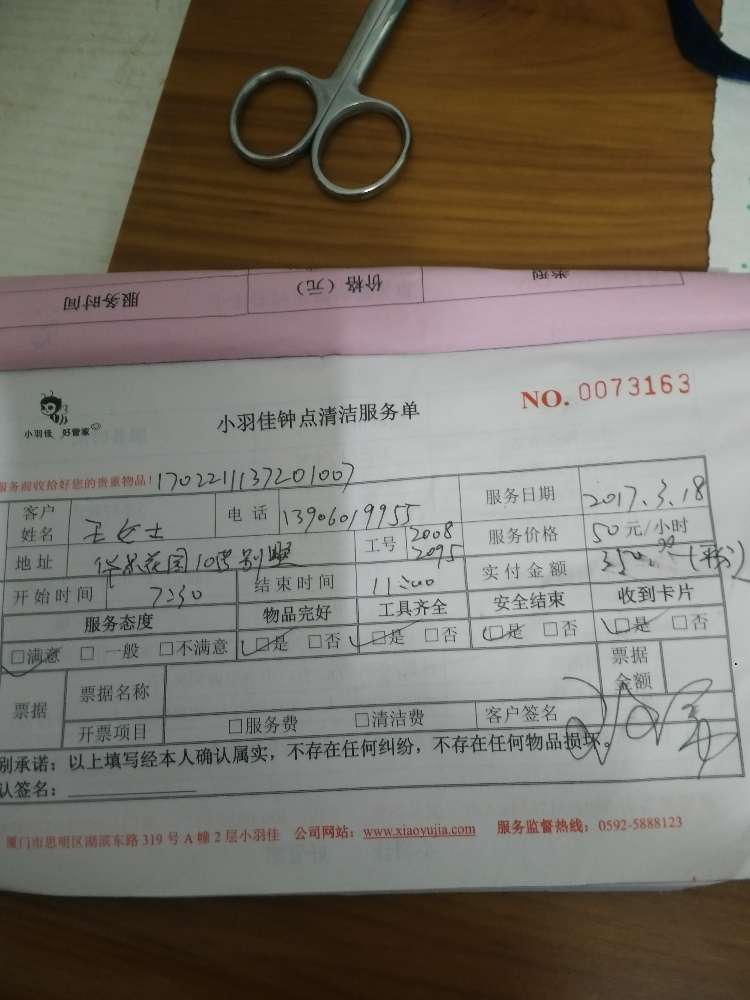 服务时间 价格（元） 类型
小羽佳 好管家
小羽佳钟点清洁服务单
NO. 0073163
服务前收拾好您的贵重物品！170221137201007
客户姓名 王女士 电话 13906019955 服务日期 2017.3.18
地址 花园10号别墅 工号 2008 2095 服务价格 50元/小时
开始时间 7:30 结束时间 11:00 实付金额 350
服务态度 物品完好 工具齐全 安全结束 收到卡片
□满意 □一般 □不满意 □是 □否 □是 □否 □是 □否 □是 □否
票据 票据名称 票据金额
开票项目 □服务费 □清洁费 客户签名
别承诺：以上填写经本人确认属实，不存在任何纠纷，不存在任何物品损坏。
认签名：
厦门市思明区湖滨东路319号A幢2层小羽佳 公司网站：www.xiaoyujia.com 服务监督热线：0592-5888123